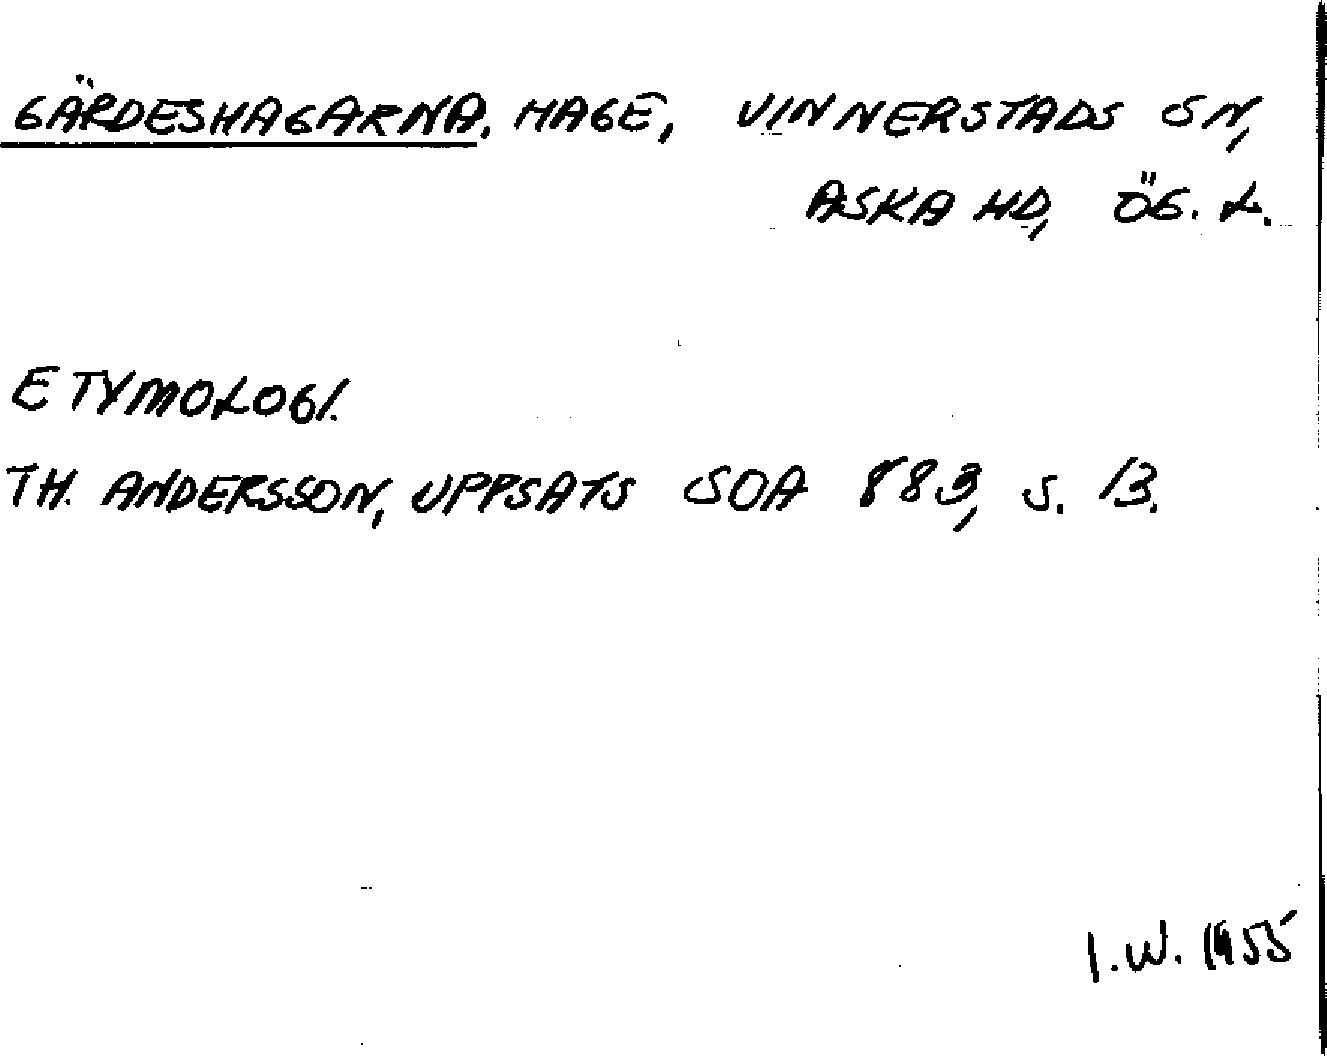 GÄRDESHAGARNA, HAGE, VINNERSTADS SN,
ASKA HD, ÖG. L.
ETYMOLOGI.
TH. ANDERSSON, UPPSATS SOA 883, S. 13.
I.W. 1955